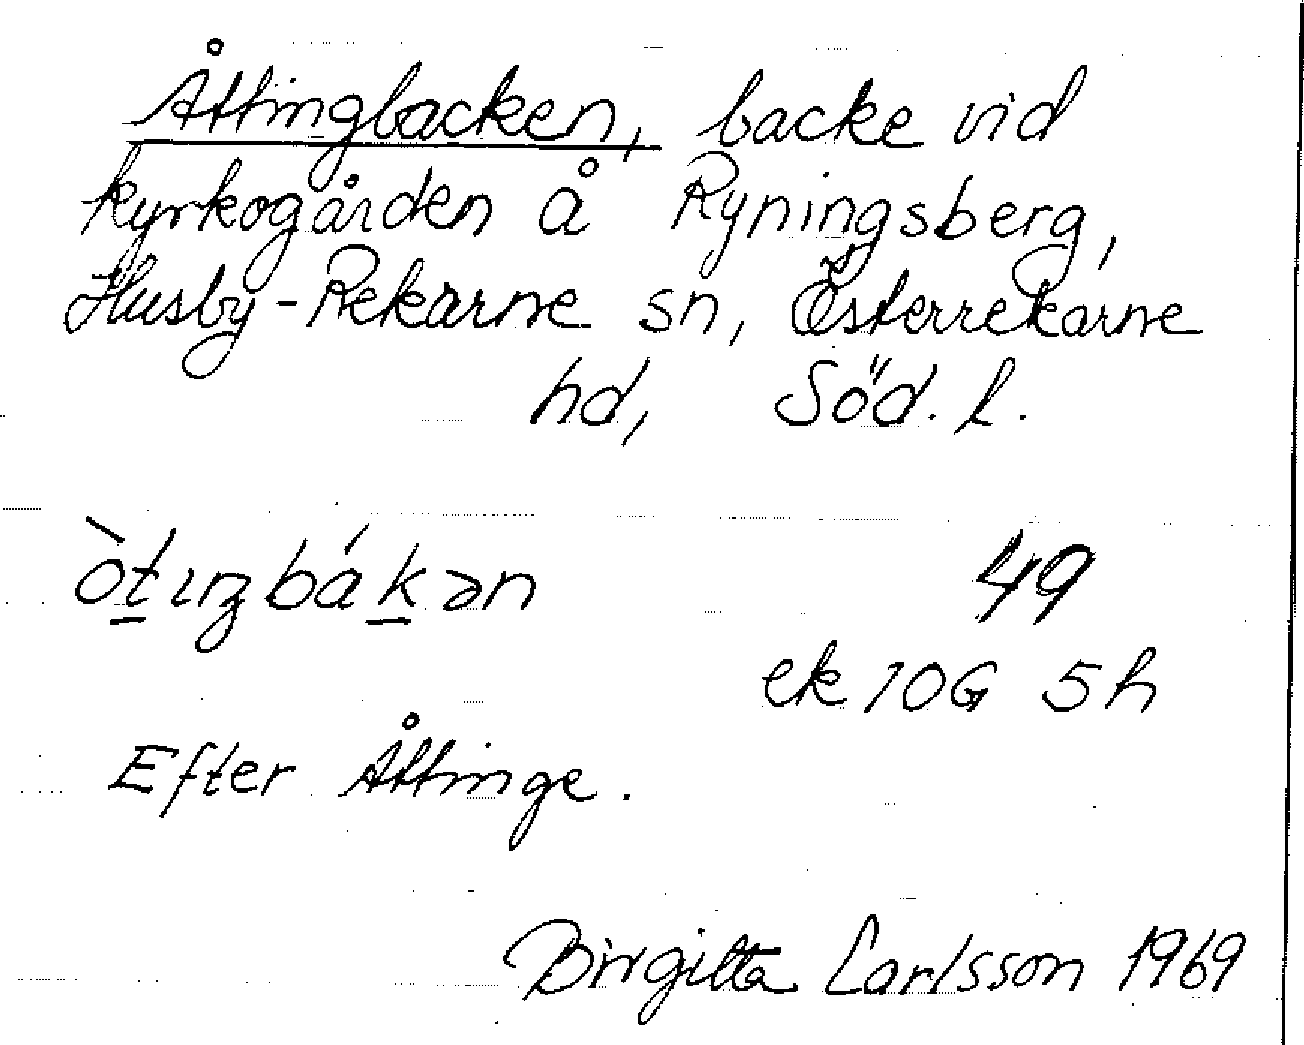 Åttingbacken, backe vid
kyrkogården å Ryningsberg,
Husby-Rekarne sn, Österrekarne
hd, Söd. l.
òt̲ɩŋbák̲ən 49
ek 10G 5h
Efter Åttinge.
Birgitta Carlsson 1969